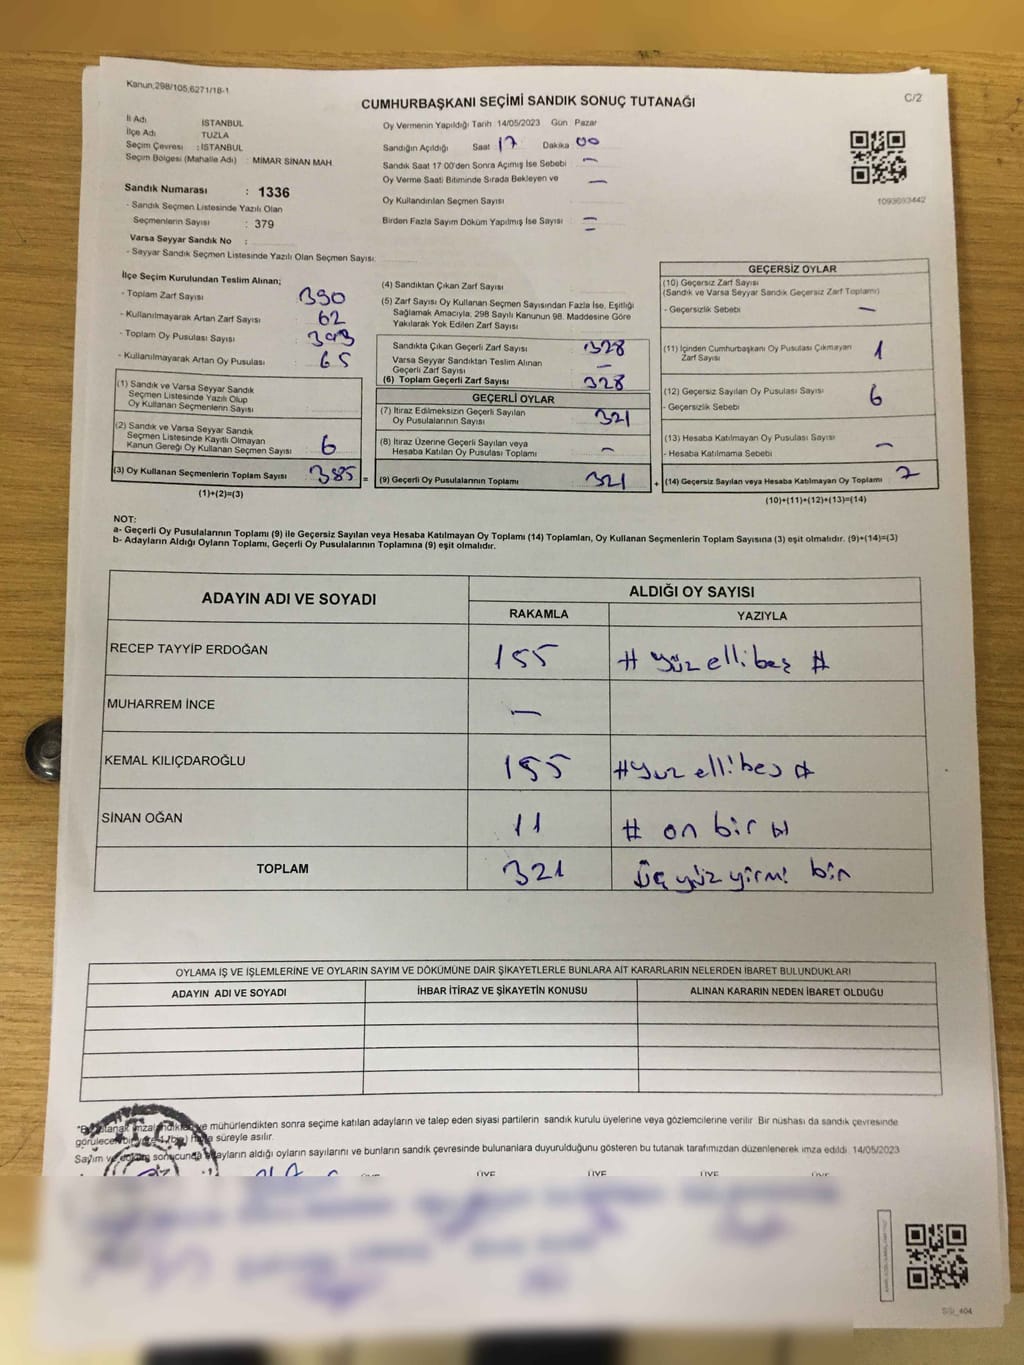 Kanun,298/105,6271/18-1
CUMHURBAŞKANI SEÇİMİ SANDIK SONUÇ TUTANAĞI
C/2
İl Adı İSTANBUL
İlçe Adı TUZLA
Seçim Çevresi : İSTANBUL
Seçim Bölgesi (Mahalle Adı) : MİMAR SİNAN MAH.
Sandık Numarası : 1336
- Sandık Seçmen Listesinde Yazılı Olan
Seçmenlerin Sayısı : 379
Varsa Seyyar Sandık No :
- Seyyar Sandık Seçmen Listesinde Yazılı Olan Seçmen Sayısı:
Oy Vermenin Yapıldığı Tarih 14/05/2023 Gün Pazar
Sandığın Açıldığı Saat 17 Dakika 00
Sandık Saat 17:00'den Sonra Açımış İse Sebebi —
Oy Verme Saati Bitiminde Sırada Bekleyen ve —
Oy Kullandırılan Seçmen Sayısı
Birden Fazla Sayım Döküm Yapılmış İse Sayısı =
1093693442
İlçe Seçim Kurulundan Teslim Alınan;
- Toplam Zarf Sayısı 390
- Kullanılmayarak Artan Zarf Sayısı 62
- Toplam Oy Pusulası Sayısı 393
- Kullanılmayarak Artan Oy Pusulası 65
(1) Sandık ve Varsa Seyyar Sandık
Seçmen Listesinde Yazılı Olup
Oy Kullanan Seçmenlerin Sayısı
(2) Sandık ve Varsa Seyyar Sandık
Seçmen Listesinde Kayıtlı Olmayan
Kanun Gereği Oy Kullanan Seçmen Sayısı 6
(3) Oy Kullanan Seçmenlerin Toplam Sayısı 385 =
(1)+(2)=(3)
(4) Sandıktan Çıkan Zarf Sayısı
(5) Zarf Sayısı Oy Kullanan Seçmen Sayısından Fazla İse, Eşitliği
Sağlamak Amacıyla, 298 Sayılı Kanunun 98. Maddesine Göre
Yakılarak Yok Edilen Zarf Sayısı
Sandıkta Çıkan Geçerli Zarf Sayısı 328
Varsa Seyyar Sandıktan Teslim Alınan —
Geçerli Zarf Sayısı
(6) Toplam Geçerli Zarf Sayısı 328
GEÇERLİ OYLAR
(7) İtiraz Edilmeksizin Geçerli Sayılan 321
Oy Pusulalarının Sayısı
(8) İtiraz Üzerine Geçerli Sayılan veya —
Hesaba Katılan Oy Pusulası Toplamı
(9) Geçerli Oy Pusulalarının Toplamı 321 +
GEÇERSİZ OYLAR
(10) Geçersiz Zarf Sayısı
(Sandık ve Varsa Seyyar Sandık Geçersiz Zarf Toplamı)
- Geçersizlik Sebebi —
(11) İçinden Cumhurbaşkanı Oy Pusulası Çıkmayan 1
Zarf Sayısı
(12) Geçersiz Sayılan Oy Pusulası Sayısı 6
- Geçersizlik Sebebi
(13) Hesaba Katılmayan Oy Pusulası Sayısı —
- Hesaba Katılmama Sebebi
(14) Geçersiz Sayılan veya Hesaba Katılmayan Oy Toplamı 7
(10)+(11)+(12)+(13)=(14)
NOT:
a- Geçerli Oy Pusulalarının Toplamı (9) ile Geçersiz Sayılan veya Hesaba Katılmayan Oy Toplamı (14) Toplamları, Oy Kullanan Seçmenlerin Toplam Sayısına (3) eşit olmalıdır. (9)+(14)=(3)
b- Adayların Aldığı Oyların Toplamı, Geçerli Oy Pusulalarının Toplamına (9) eşit olmalıdır.
ADAYIN ADI VE SOYADI ALDIĞI OY SAYISI
RAKAMLA YAZIYLA
RECEP TAYYİP ERDOĞAN 155 # yüz elli beş #
MUHARREM İNCE —
KEMAL KILIÇDAROĞLU 155 # yüz elli beş #
SİNAN OĞAN 11 # on bir #
TOPLAM 321 üç yüz yirmi bir
OYLAMA İŞ VE İŞLEMLERİNE VE OYLARIN SAYIM VE DÖKÜMÜNE DAİR ŞİKAYETLERLE BUNLARA AİT KARARLARIN NELERDEN İBARET BULUNDUKLARI
ADAYIN ADI VE SOYADI İHBAR İTİRAZ VE ŞİKAYETİN KONUSU ALINAN KARARIN NEDEN İBARET OLDUĞU
mühürlendikten sonra seçime katılan adayların ve talep eden siyasi partilerin sandık kurulu üyelerine veya gözlemcilerine verilir. Bir nüshası da sandık çevresinde
süreyle asılır.
Sayım ve döküm sonucunda adayların aldığı oyların sayılarını ve bunların sandık çevresinde bulunanlara duyurulduğunu gösteren bu tutanak tarafımızdan düzenlenerek imza edildi. 14/05/2023
ÜYE ÜYE ÜYE ÜYE ÜYE